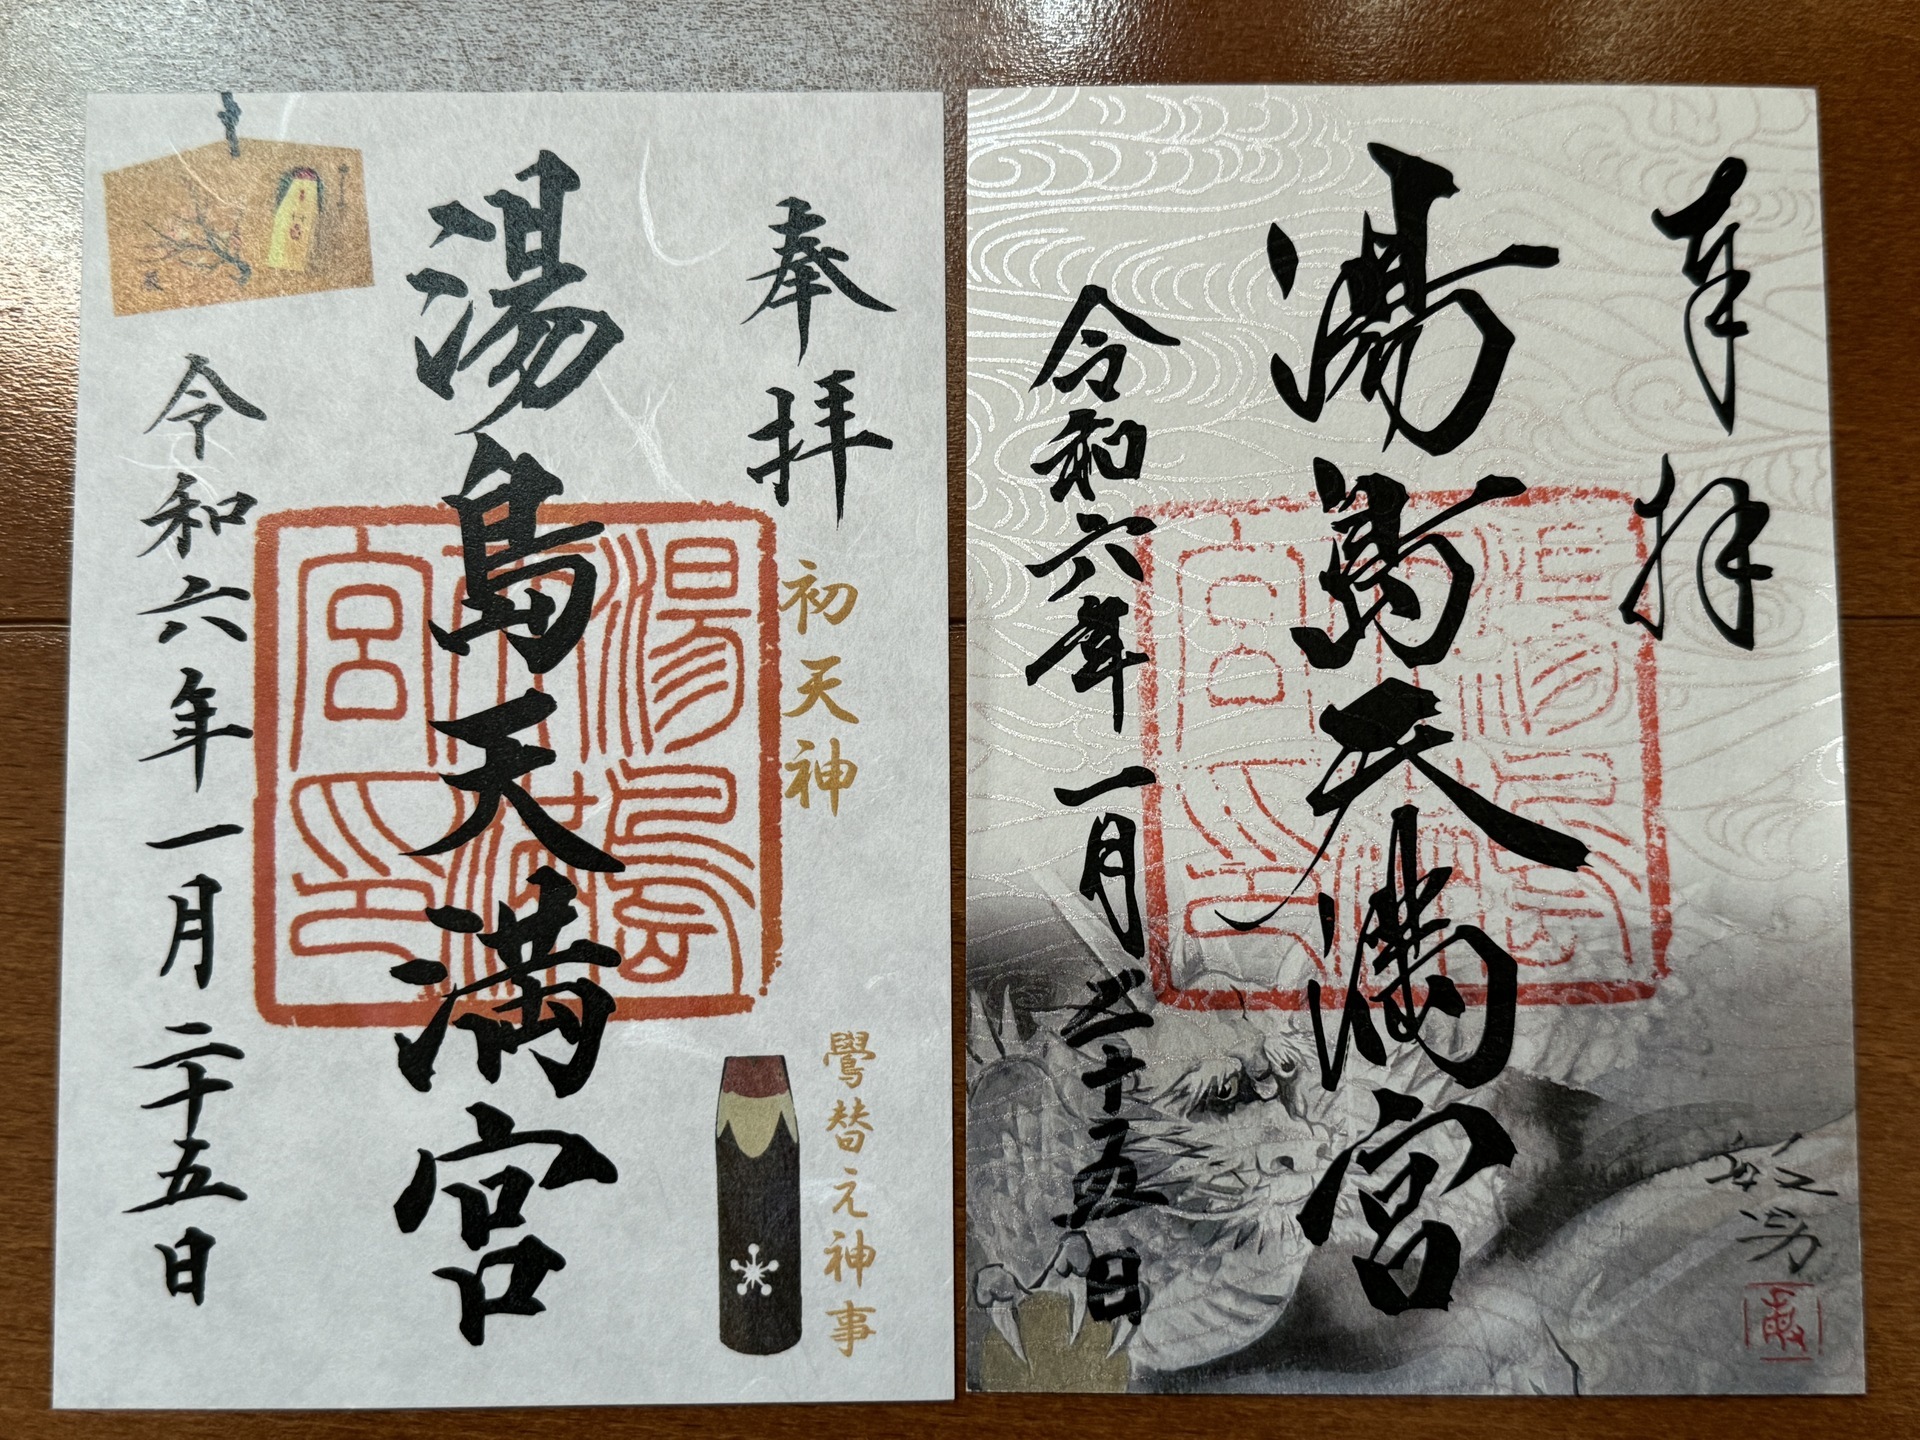 奉拝
初天神
鷽替え神事
湯島天満宮
令和六年一月二十五日
湯島天満宮印
奉拝
湯島天満宮
令和六年一月二十五日
湯島天満宮印